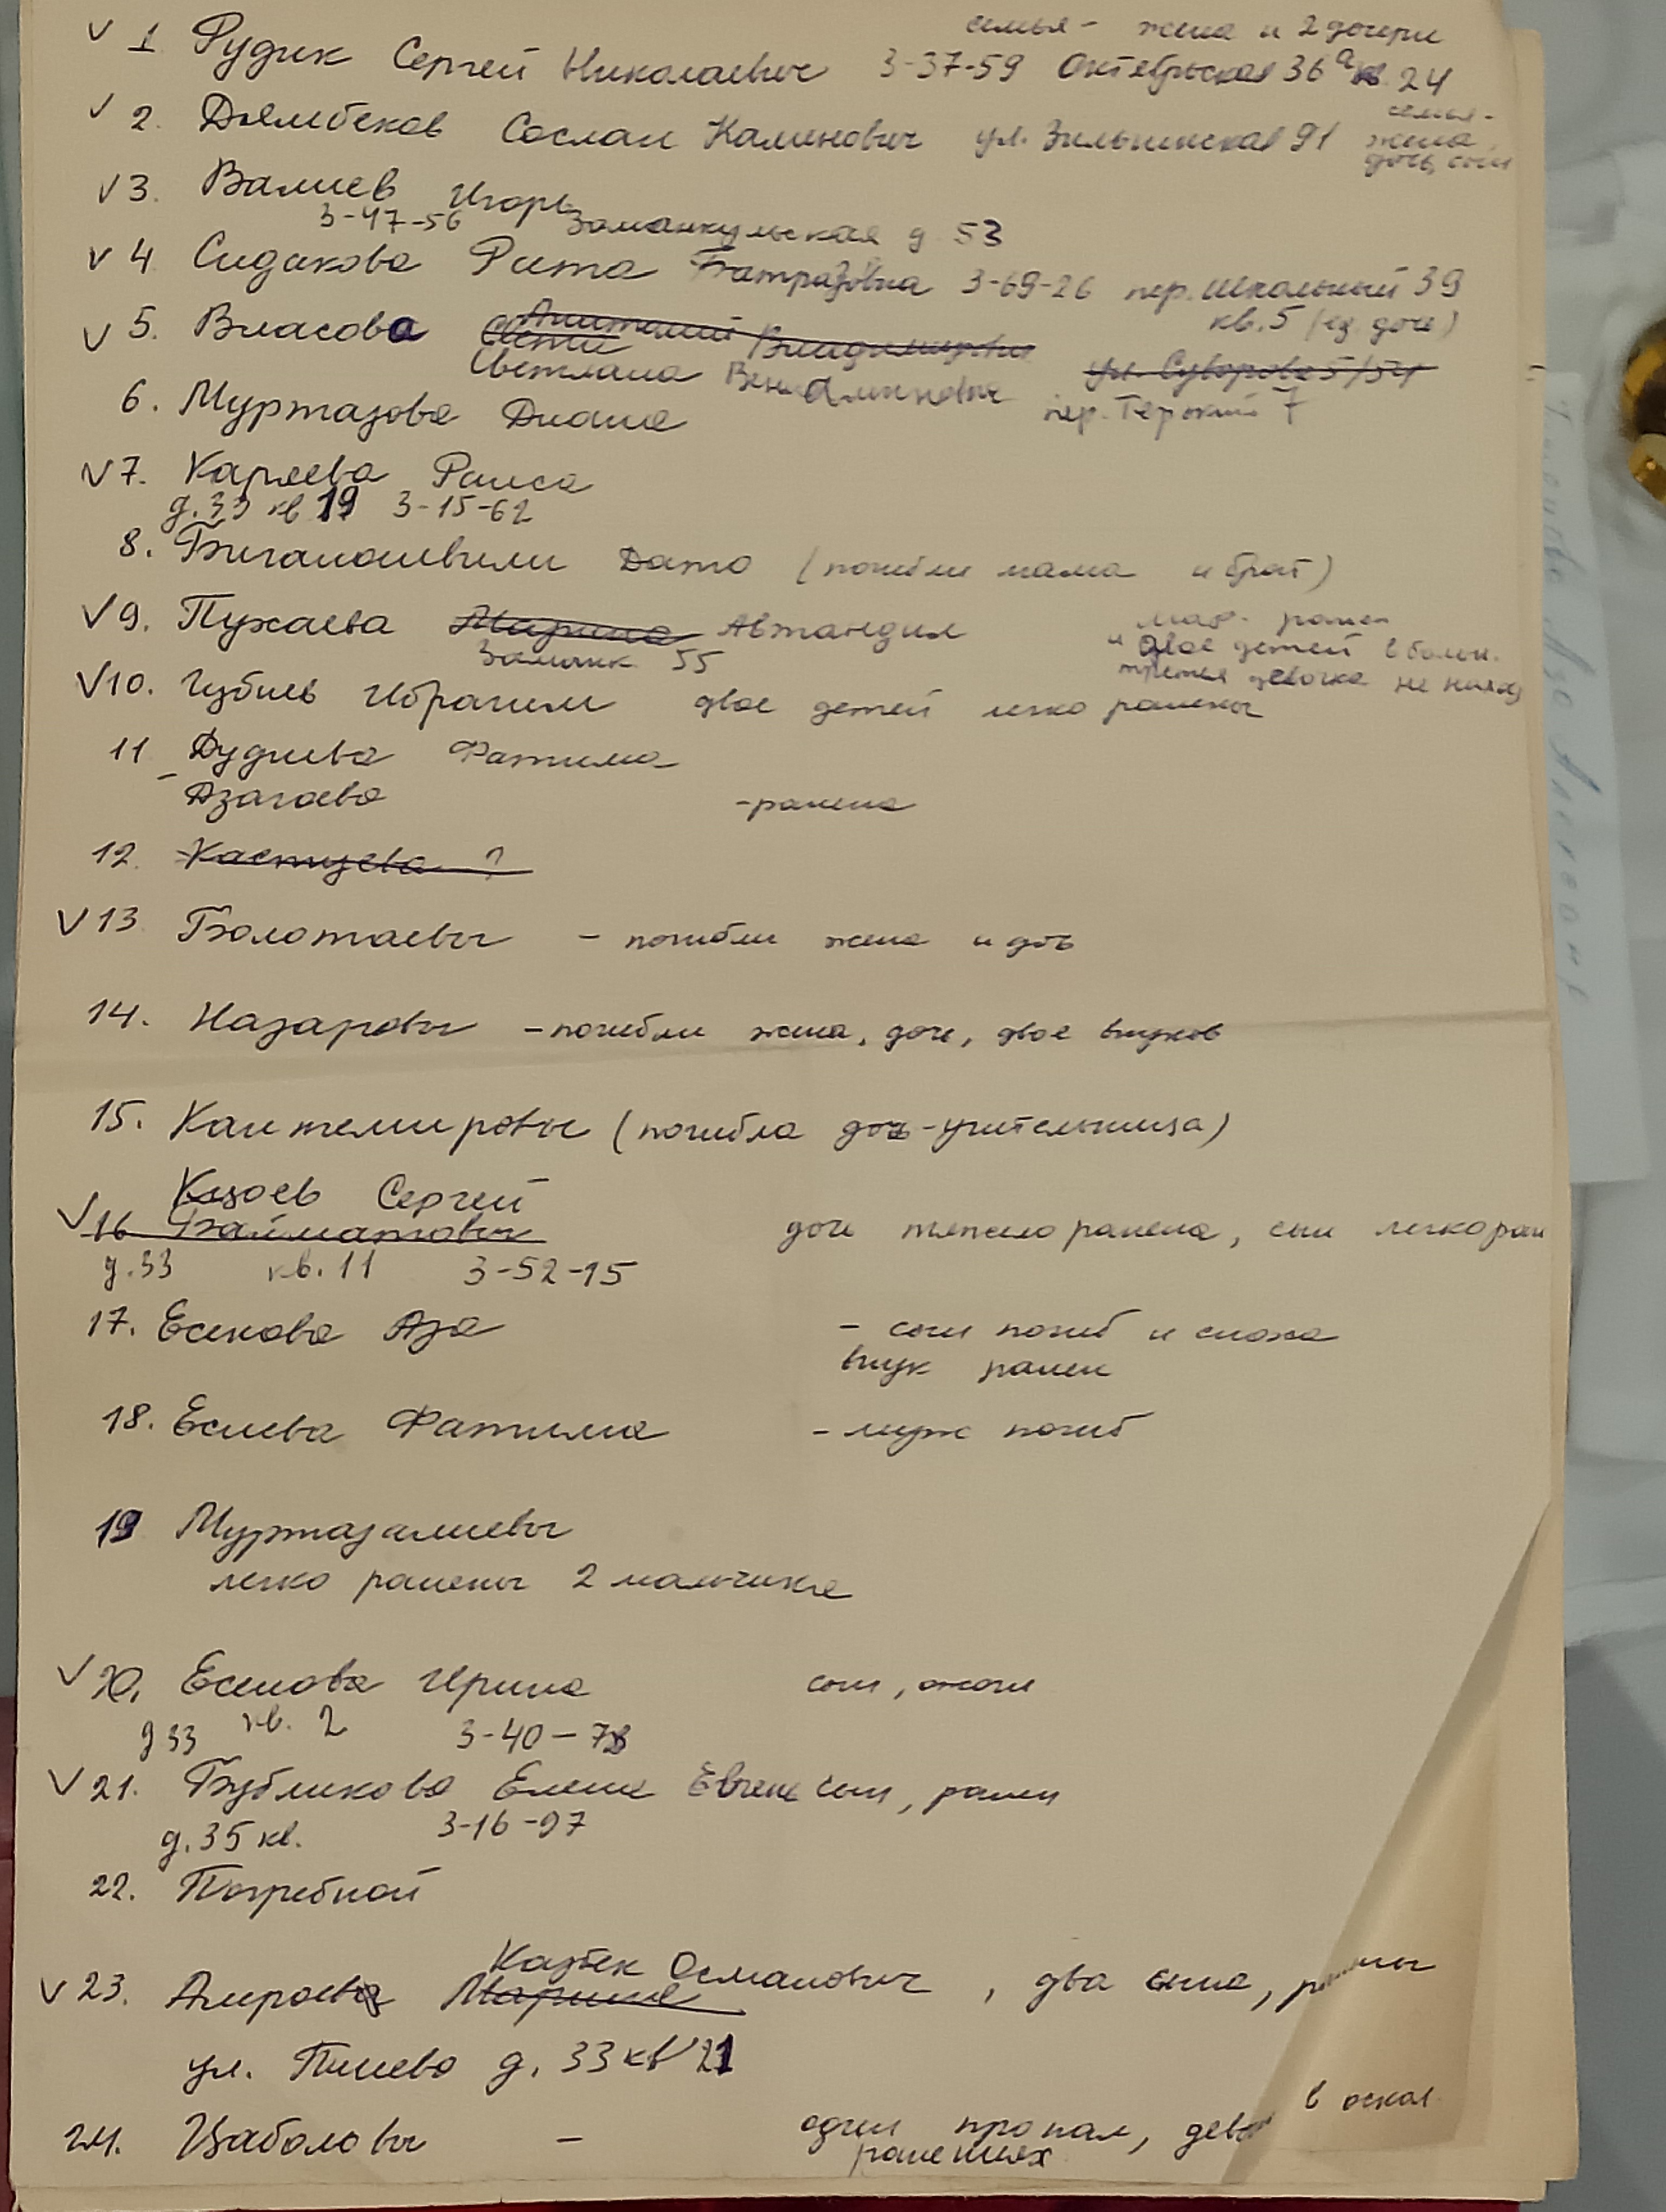 семья - жена и 2 дочери
V 1 Рудик Сергей Николаевич 3-37-59 Октябрьская 36а кв. 24
V 2. Дямбеков Сослан Каминович ул. Зильгинская 91 семья - жена, дочь, сын
V 3. Валиев Игорь
3-47-56 Заманкульская д 53
V 4 Сидакова Рита Батразовна 3-69-26 пер. Школьный 39
кв. 5 (ед. дочь)
V 5. Власова Владимировна ул. Суворова 5/54
Светлана Вениаминовна пер. Терский 7
6. Муртазова Диана
V 7. Каряева Раиса
д. 33 кв 19 3-15-62
8. Бигонашвили Дато (погибли мама и брат)
V 9. Пухаева Марина Автандил ранен
Заманк. 55 и двое детей в больн.
третья девочка не наход
V 10. Чубиев Ибрагим двое детей легко ранены
11 Дудиева Фатима
- Азагоева - ранена
12. Кастуева ?
V 13 Болотаевы - погибли жена и дочь
14. Назаровы - погибли жена, дочь, двое внуков
15. Кантемировы (погибла дочь-учительница)
Козоев Сергей
V 16 Байматовы дочь тяжело ранена, сын легко ран
д. 33 кв. 11 3-52-15
17. Есенова Аза - сын погиб и сноха
внук ранен
18. Есиева Фатима - муж погиб
19 Муртазалиевы
легко ранены 2 мальчика
V 20. Есенова Ирина сын, ожоги
д 33 кв. 2 3-40-78
V 21. Бубликова Елена Евгене сын, ранен
д. 35 кв. 3-16-97
22. Погребной
Казбек Османович
V 23. Амроева Марина , два сына, ранены
ул. Плиева д. 33 кв 21
24. Цаболовы - один пропал, в оскол.
ранениях